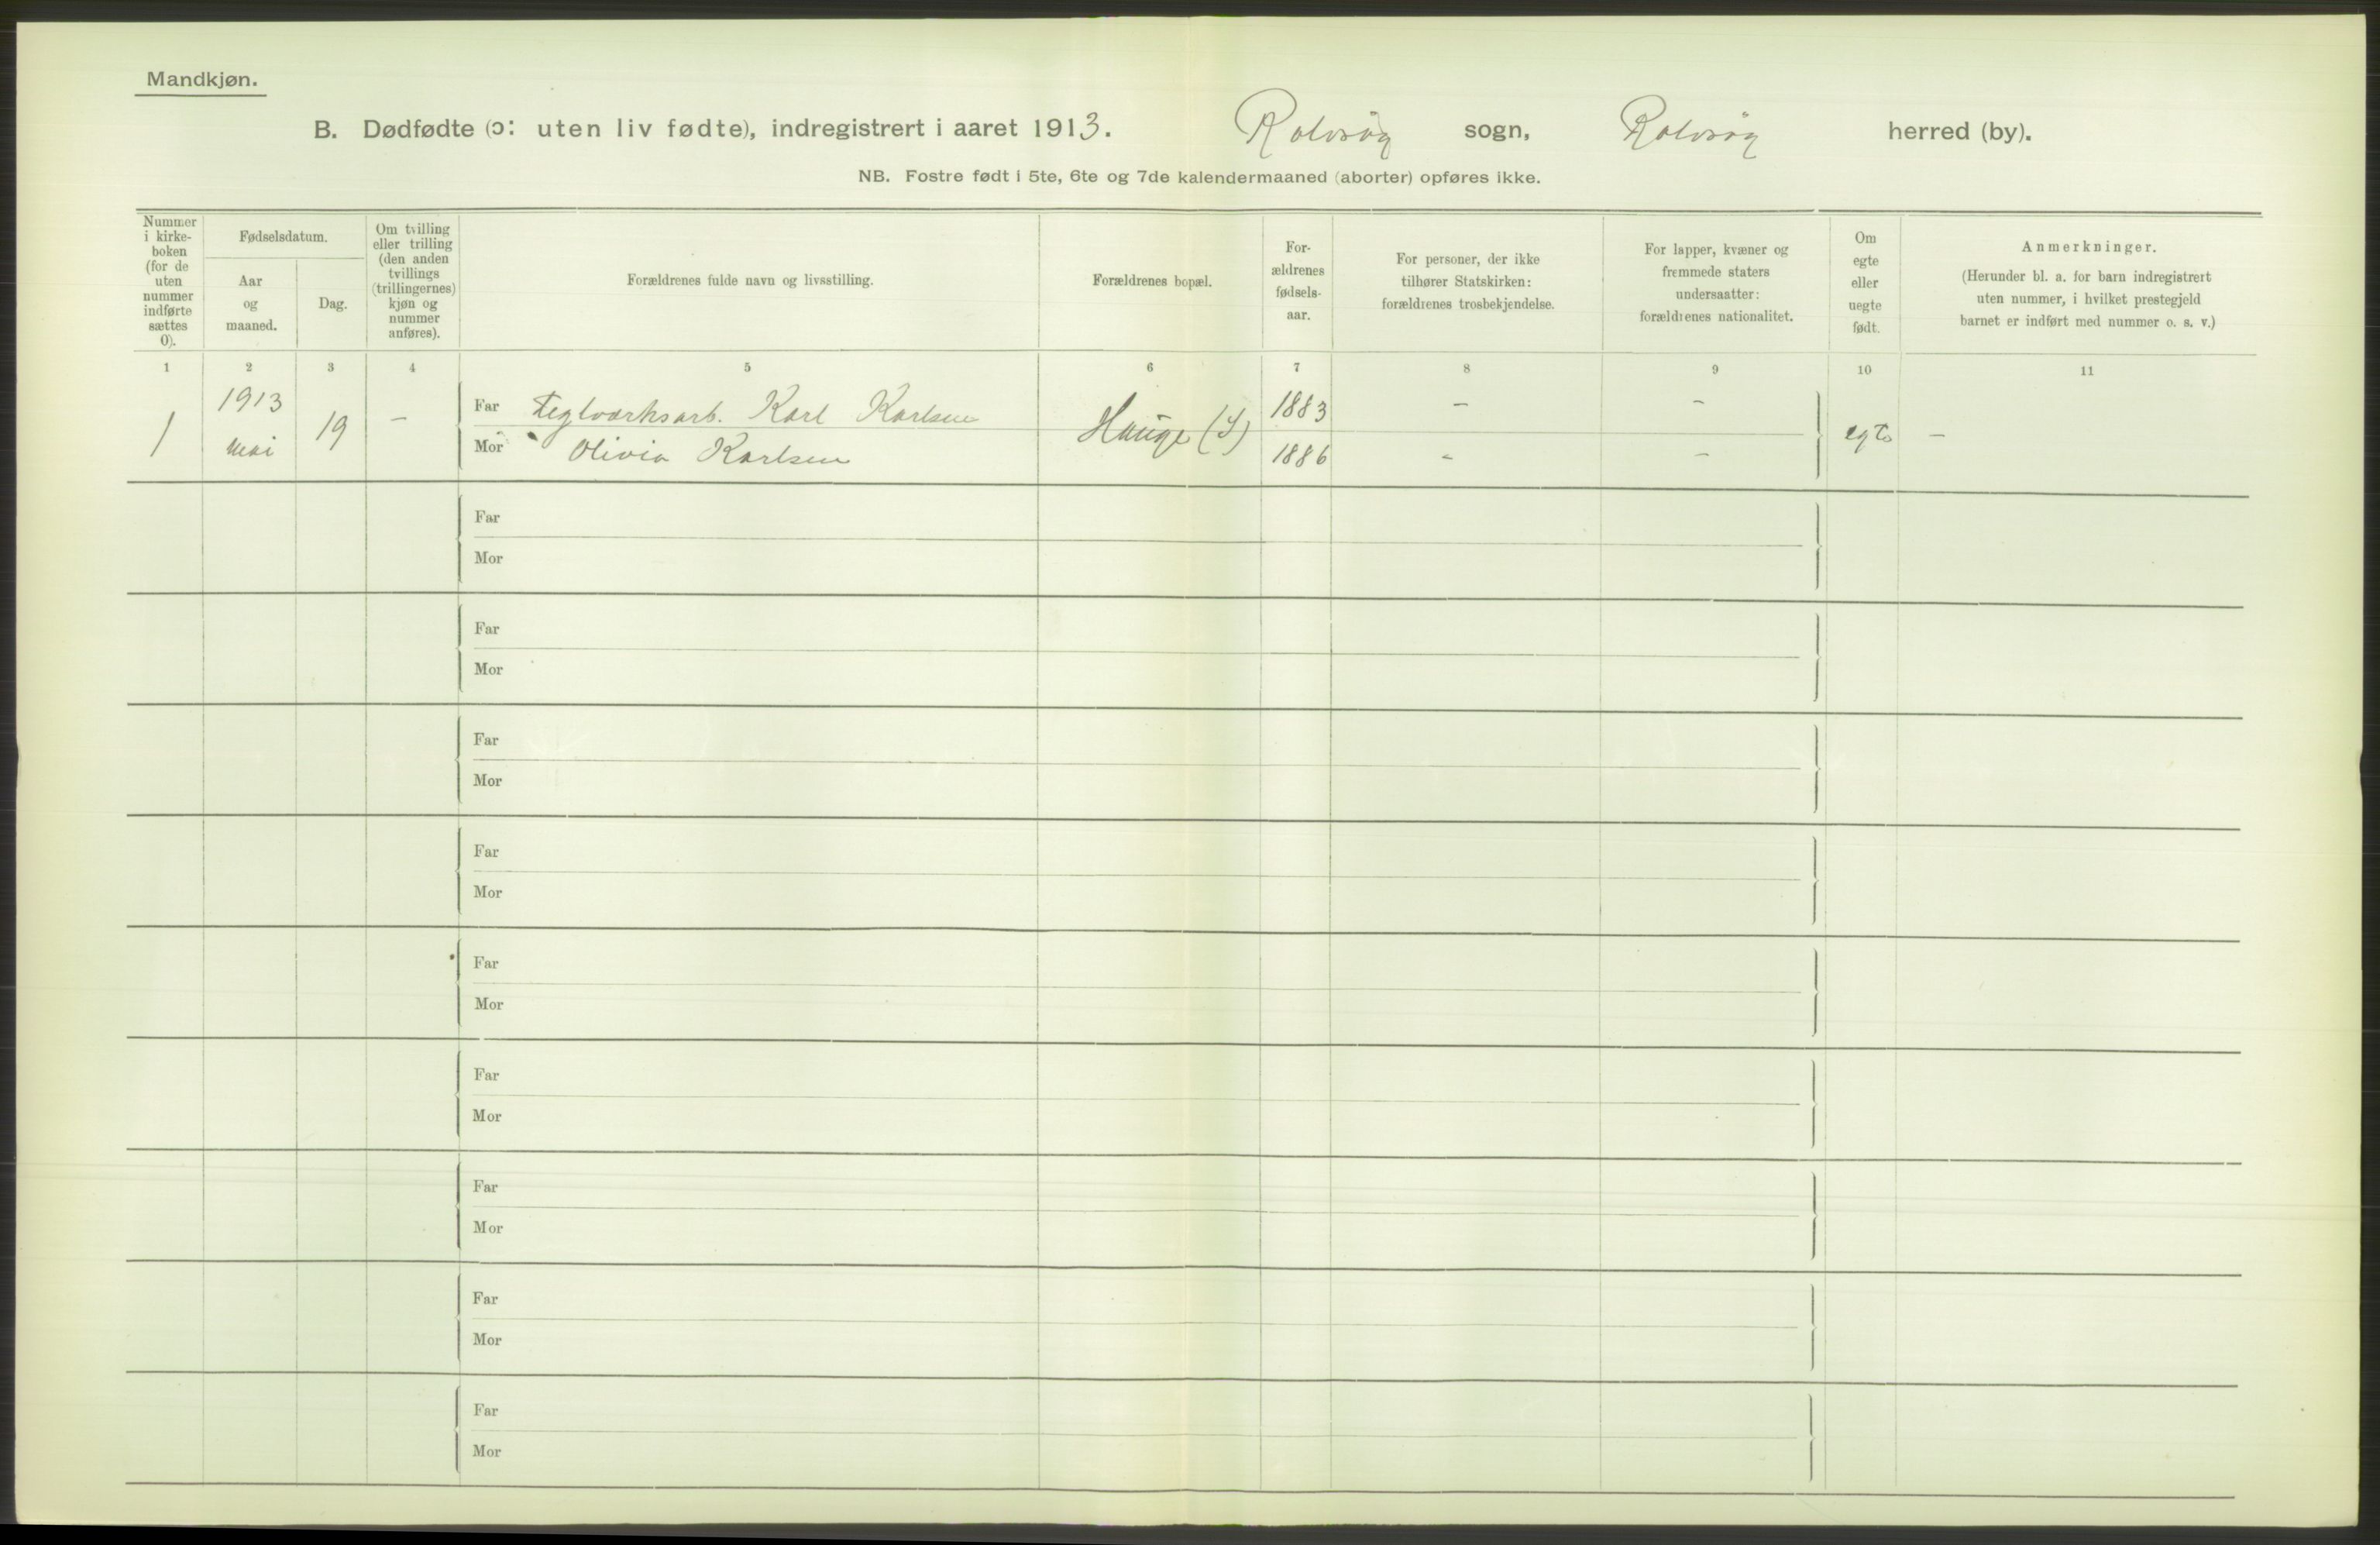 Mandkjøn.
B. Dødfødte (ɔ: uten liv fødte), indregistrert i aaret 1913. Rolvsøy sogn, Rolvsøy herred (by).
NB. Fostre født i 5te, 6te og 7de kalendermaaned (aborter) opføres ikke.
Nummer
i kirke-
boken
(for de
uten
nummer
indførte
sættes
0).
Fødselsdatum.
Aar
og
maaned.
Dag.
Om tvilling
eller trilling
(den anden
tvillings
(trillingernes)
kjøn og
nummer
anføres).
Forældrenes fulde navn og livsstilling.
Forældrenes bopæl.
For-
ældrenes
fødsels-
aar.
For personer, der ikke
tilhører Statskirken:
forældrenes trosbekjendelse.
For lapper, kvæner og
fremmede staters
undersaatter:
forældrenes nationalitet.
Om
egte
eller
uegte
født.
Anmerkninger.
(Herunder bl. a. for barn indregistrert
uten nummer, i hvilket prestegjeld
barnet er indført med nummer o. s. v.)
1 2 3 4 5 6 7 8 9 10 11
1 1913 mai 19 –
Far Teglværksarb. Karl Karlsen Hauge (S) 1883 – –
Mor Olivia Karlsen 1886 – –
egte –
Far
Mor
Far
Mor
Far
Mor
Far
Mor
Far
Mor
Far
Mor
Far
Mor
Far
Mor
Far
Mor